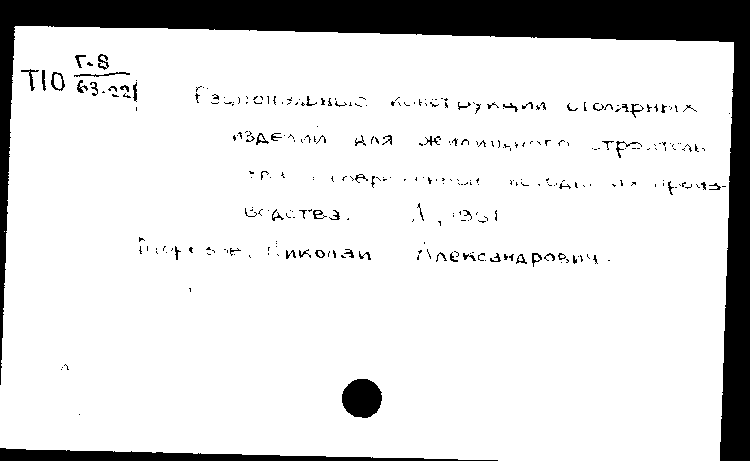 Г-8
Т10 63-22
Рациональные конструкции столярных
изделий для жилищного строитель
ства и современные методы их произ-
водства. Л, 1961
Николай Александрович.